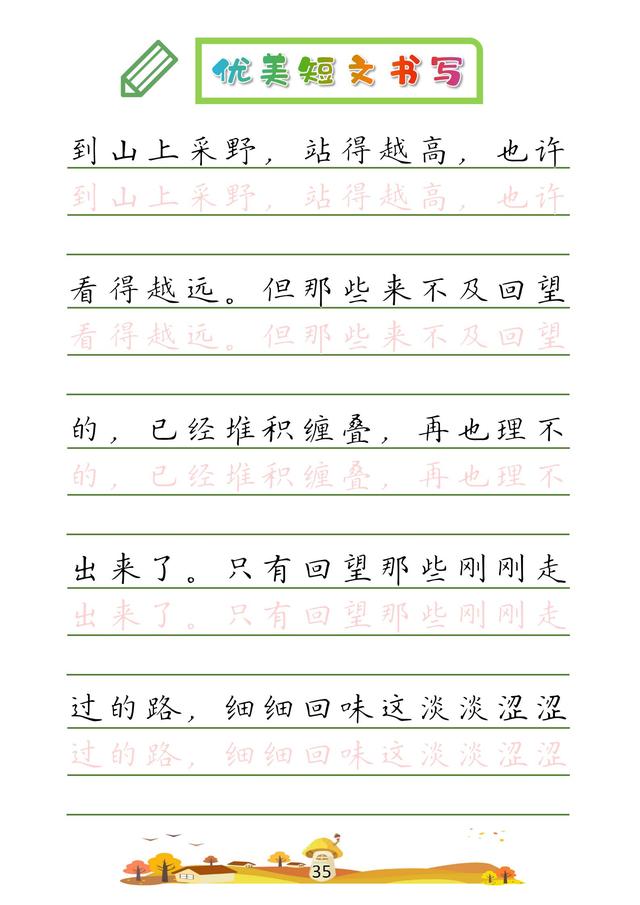 优美短文书写
到山上采野，站得越高，也许
到山上采野，站得越高，也许
看得越远。但那些来不及回望
看得越远。但那些来不及回望
的，已经堆积缠叠，再也理不
的，已经堆积缠叠，再也理不
出来了。只有回望那些刚刚走
出来了。只有回望那些刚刚走
过的路，细细回味这淡淡涩涩
过的路，细细回味这淡淡涩涩
35